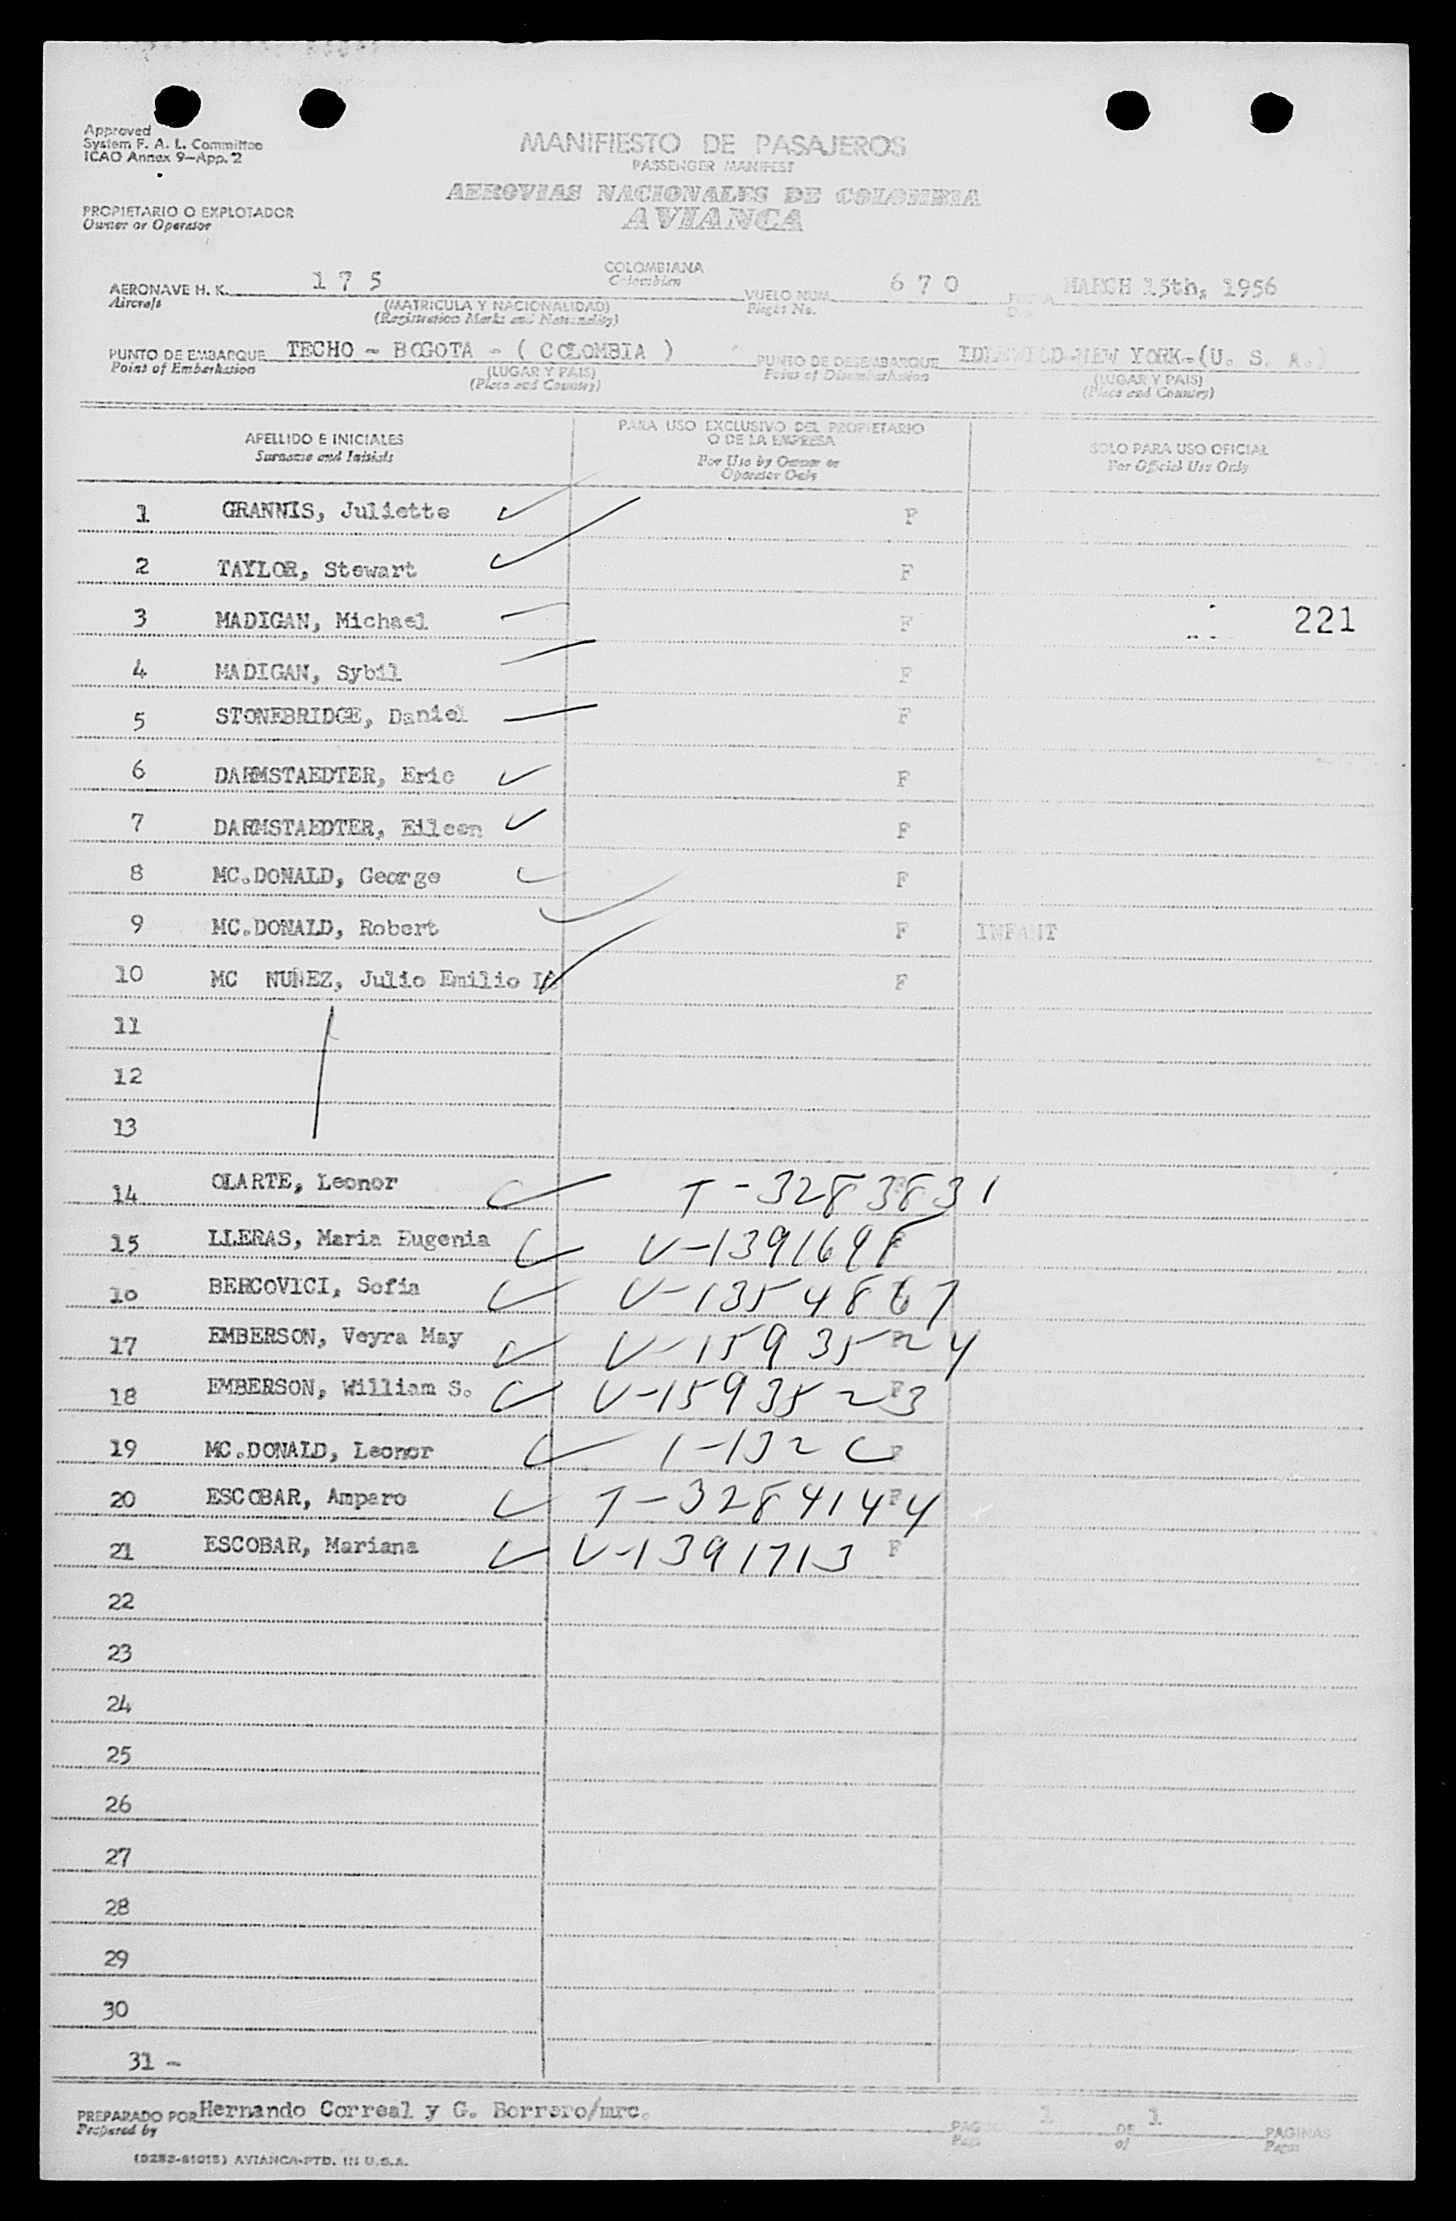 Approved
System F. A. L. Committee
ICAO Annex 9—App. 2
MANIFIESTO DE PASAJEROS
PASSENGER MANIFEST
AEROVIAS NACIONALES DE COLOMBIA
AVIANCA
PROPIETARIO O EXPLOTADOR
Owner or Operator
AERONAVE H. K. 175 COLOMBIANA VUELO NUM. 670 MARCH 15th, 1956
Aircraft (MATRICULA Y NACIONALIDAD) Colombian Flight No.
(Registration Marks and Nationality)
PUNTO DE EMBARQUE TECHO - BOGOTA - ( COLOMBIA ) PUNTO DE DESEMBARQUE IDLEWILD-NEW YORK-(U. S. A.)
Point of Embarkation (LUGAR Y PAIS) Point of Disembarkation (LUGAR Y PAIS)
(Place and Country) (Place and Country)
APELLIDO E INICIALES PARA USO EXCLUSIVO DEL PROPIETARIO O DE LA EMPRESA SOLO PARA USO OFICIAL
Surname and Initials For Use by Owner or Operator Only For Official Use Only
1 GRANNIS, Juliette F
2 TAYLOR, Stewart F
3 MADIGAN, Michael F 221
4 MADIGAN, Sybil F
5 STONEBRIDGE, Daniel F
6 DARMSTAEDTER, Eric F
7 DARMSTAEDTER, Eileen F
8 MC.DONALD, George F
9 MC.DONALD, Robert F INFANT
10 MC NUÑEZ, Julio Emilio F
11
12
13
14 OLARTE, Leonor T-3283831
15 LLERAS, Maria Eugenia V-1391698
16 BERCOVICI, Sofia V-1354867
17 EMBERSON, Veyra May V-1593524
18 EMBERSON, William S. V-1593523 F
19 MC.DONALD, Leonor 1-132 C F
20 ESCOBAR, Amparo T-3284144 F
21 ESCOBAR, Mariana V-1391713 F
22
23
24
25
26
27
28
29
30
31 -
PREPARADO POR Hernando Correal y G. Borrero/mrc. 1 DE 1 PAGINAS
Prepared by Page of Pages
AVIANCA-PTD. IN U.S.A.